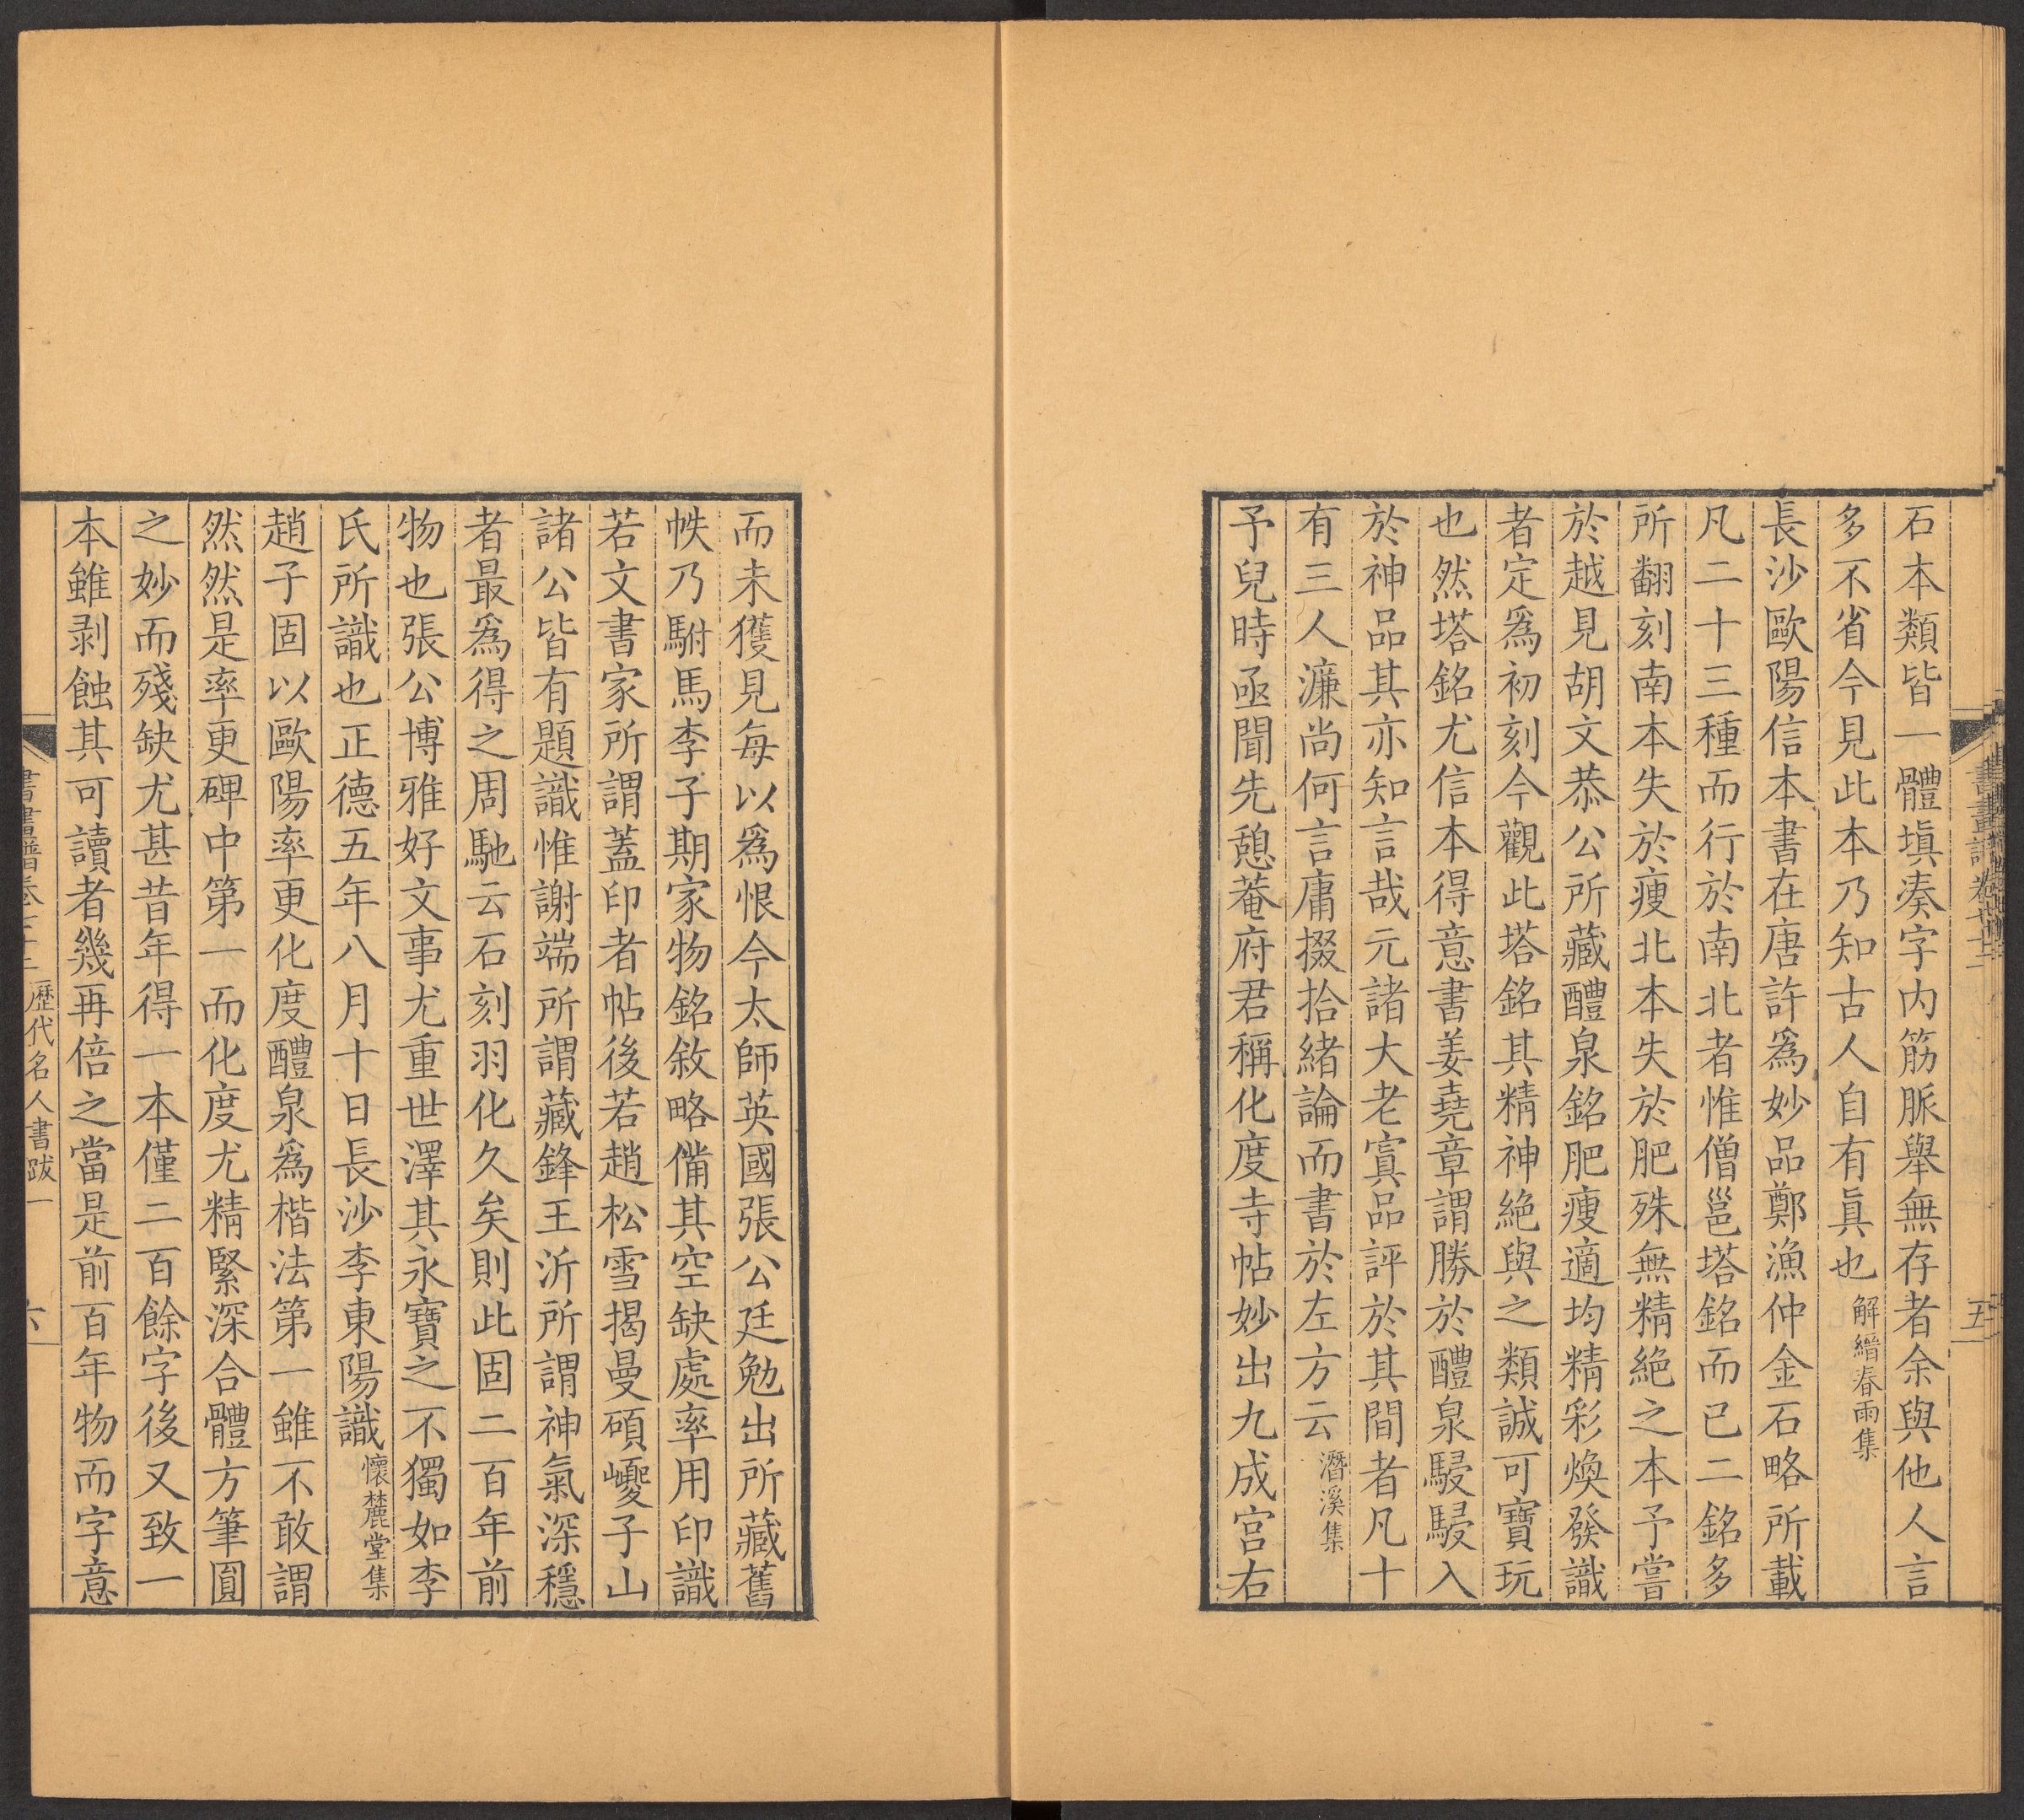 石本類皆一體塡凑字内筋脈舉無存者余與他人言
多不省今見此本乃知古人自有眞也 解縉春雨集
長沙歐陽信本書在唐許爲妙品鄭漁仲金石略所載
凡二十三種而行於南北者惟僧邕塔銘而已二銘多
所翻刻南本失於瘦北本失於肥殊無精絶之本予嘗
於越見胡文恭公所藏醴泉銘肥瘦適均精彩煥發識
者定爲初刻今觀此塔銘其精神絶與之類誠可寶玩
也然塔銘尤信本得意書姜堯章謂勝於醴泉駸駸入
於神品其亦知言哉元諸大老寘品評於其間者凡十
有三人濂尚何言庸掇拾緒論而書於左方云 潛溪集
予兒時亟聞先憩菴府君稱化度寺帖妙出九成宫右
而未獲見每以爲恨今太師英國張公廷勉出所藏舊
帙乃駙馬李子期家物銘敘略備其空缺處率用印識
若文書家所謂蓋印者帖後若趙松雪揭曼碩巙子山
諸公皆有題識惟謝端所謂藏鋒王沂所謂神氣深穩
者最爲得之周馳云石刻羽化久矣則此固二百年前
物也張公博雅好文事尤重世澤其永寶之不獨如李
氏所識也正德五年八月十日長沙李東陽識 懷麓堂集
趙子固以歐陽率更化度醴泉爲楷法第一雖不敢謂
然然是率更碑中第一而化度尤精緊深合體方筆圓
之妙而殘缺尤甚昔年得一本僅二百餘字後又致一
本雖剥蝕其可讀者幾再倍之當是前百年物而字意
歷代名人書跋一
六